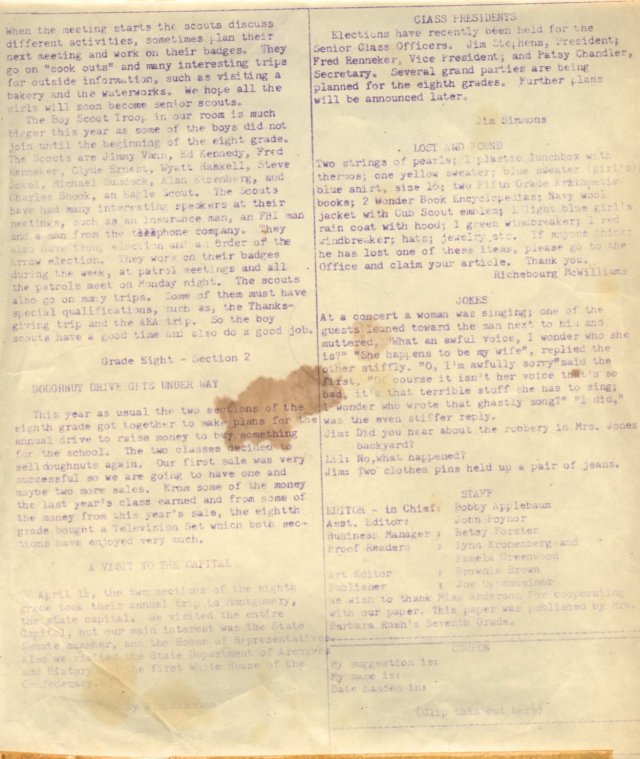 When the meeting starts the scouts discuss
different activities, sometimes plan their
next meeting and work on their badges. They
go on "cook outs" and many interesting trips
for outside information, such as visiting a
bakery and the waterworks. We hope all the
girls will soon become senior scouts.
The Boy Scout Troop in our room is much
bigger this year as some of the boys did not
join until the beginning of the eight grade.
The Scouts are Jimmy Vann, Ed Kennedy, Fred
Renneker, Clyde Ernest, Wyatt Haskell, Steve
Sokol, Michael Alan Eisenberg, and
Charles Shook, an Eagle Scout. The Scouts
have had many interesting speakers at their
meetings, such as an Insurance man, an FBI man
and a man from the telephone company. They
also have troop election and an Order of the
Arrow election. They work on their badges
during the week, at patrol meetings and all
the patrols meet on Monday night. The scouts
also go on many trips. Some of them must have
special qualifications, such as, the Thanks-
giving trip and the AEA trip. So the boy
scouts have a good time and also do a good job.
Grade Eight - Section 2
DOUGHNUT DRIVE GETS UNDER WAY
This year as usual the two sections of the
eighth grade got together to make plans for the
annual drive to raise money to buy something
for the school. The two classes decided to
sell doughnuts again. Our first sale was very
successful so we are going to have one and
maybe two more sales. From some of the money
the last year's class earned and from some of
the money from this year's sale, the eightth
grade bought a Television Set which both sec-
tions have enjoyed very much.
A VISIT TO THE CAPITAL
April 14, the two sections of the eighth
grade took their annual trip to Montgomery,
the state capital. We visited the entire
Capital, but our main interest was the State
Senate chamber, and the House of Representatives.
Also we visited the State Department of Archives
and History and the first White House of the
Confederacy.
By Jim Simmons
CLASS PRESIDENTS
Elections have recently been held for the
Senior Class Officers. Jim Stephens, President;
Fred Renneker, Vice President; and Patsy Chandler,
Secretary. Several grand parties are being
planned for the eighth grades. Further plans
will be announced later.
Jim Simmons
LOST AND FOUND
Two strings of pearls; 1 plastic lunchbox with
thermos; one yellow sweater; blue sweater (girl's)
blue shirt, size 16; two Fifth Grade Arithmetic
books; 2 Wonder Book Encyclopedias; Navy wool
jacket with Cub Scout emblem; 1 light blue girl's
rain coat with hood; 1 green windbreaker; 1 red
windbreaker; hats; jewelry,etc. If anyone thinks
he has lost one of these items, please go to the
Office and claim your article. Thank you.
Richebourg McWilliams
JOKES
At a concert a woman was singing; one of the
guests leaned toward the man next to him and
muttered, "What an awful voice, I wonder who she
is?" "She happens to be my wife", replied the
other stiffly. "O, I'm awfully sorry"said the
first, "Of course it isn't her voice that's so
bad, it's that terrible stuff she has to sing;
I wonder who wrote that ghastly song?" "I did,"
was the even stiffer reply.
Jim: Did you hear about the robbery in Mrs. Jones
backyard?
Lil: No,what happened?
Jim: Two clothes pins held up a pair of jeans.
STAFF
EDITOR - in Chief: Bobby Applebaum
Asst. Editor: John Poynor
Business Manager : Betsy Forster
Proof Readers : Lynn Kronenberg and
Pamela Greenwood
Art Editor : Brownie Brown
Publisher : Joe Oppenheimer
We wish to thank Miss Anderson for cooperating
with our paper. This paper was published by Mrs.
Barbara Rush's Seventh Grade.
COUPON
My suggestion is:
My name is:
Date handed in:
(Clip this out here)